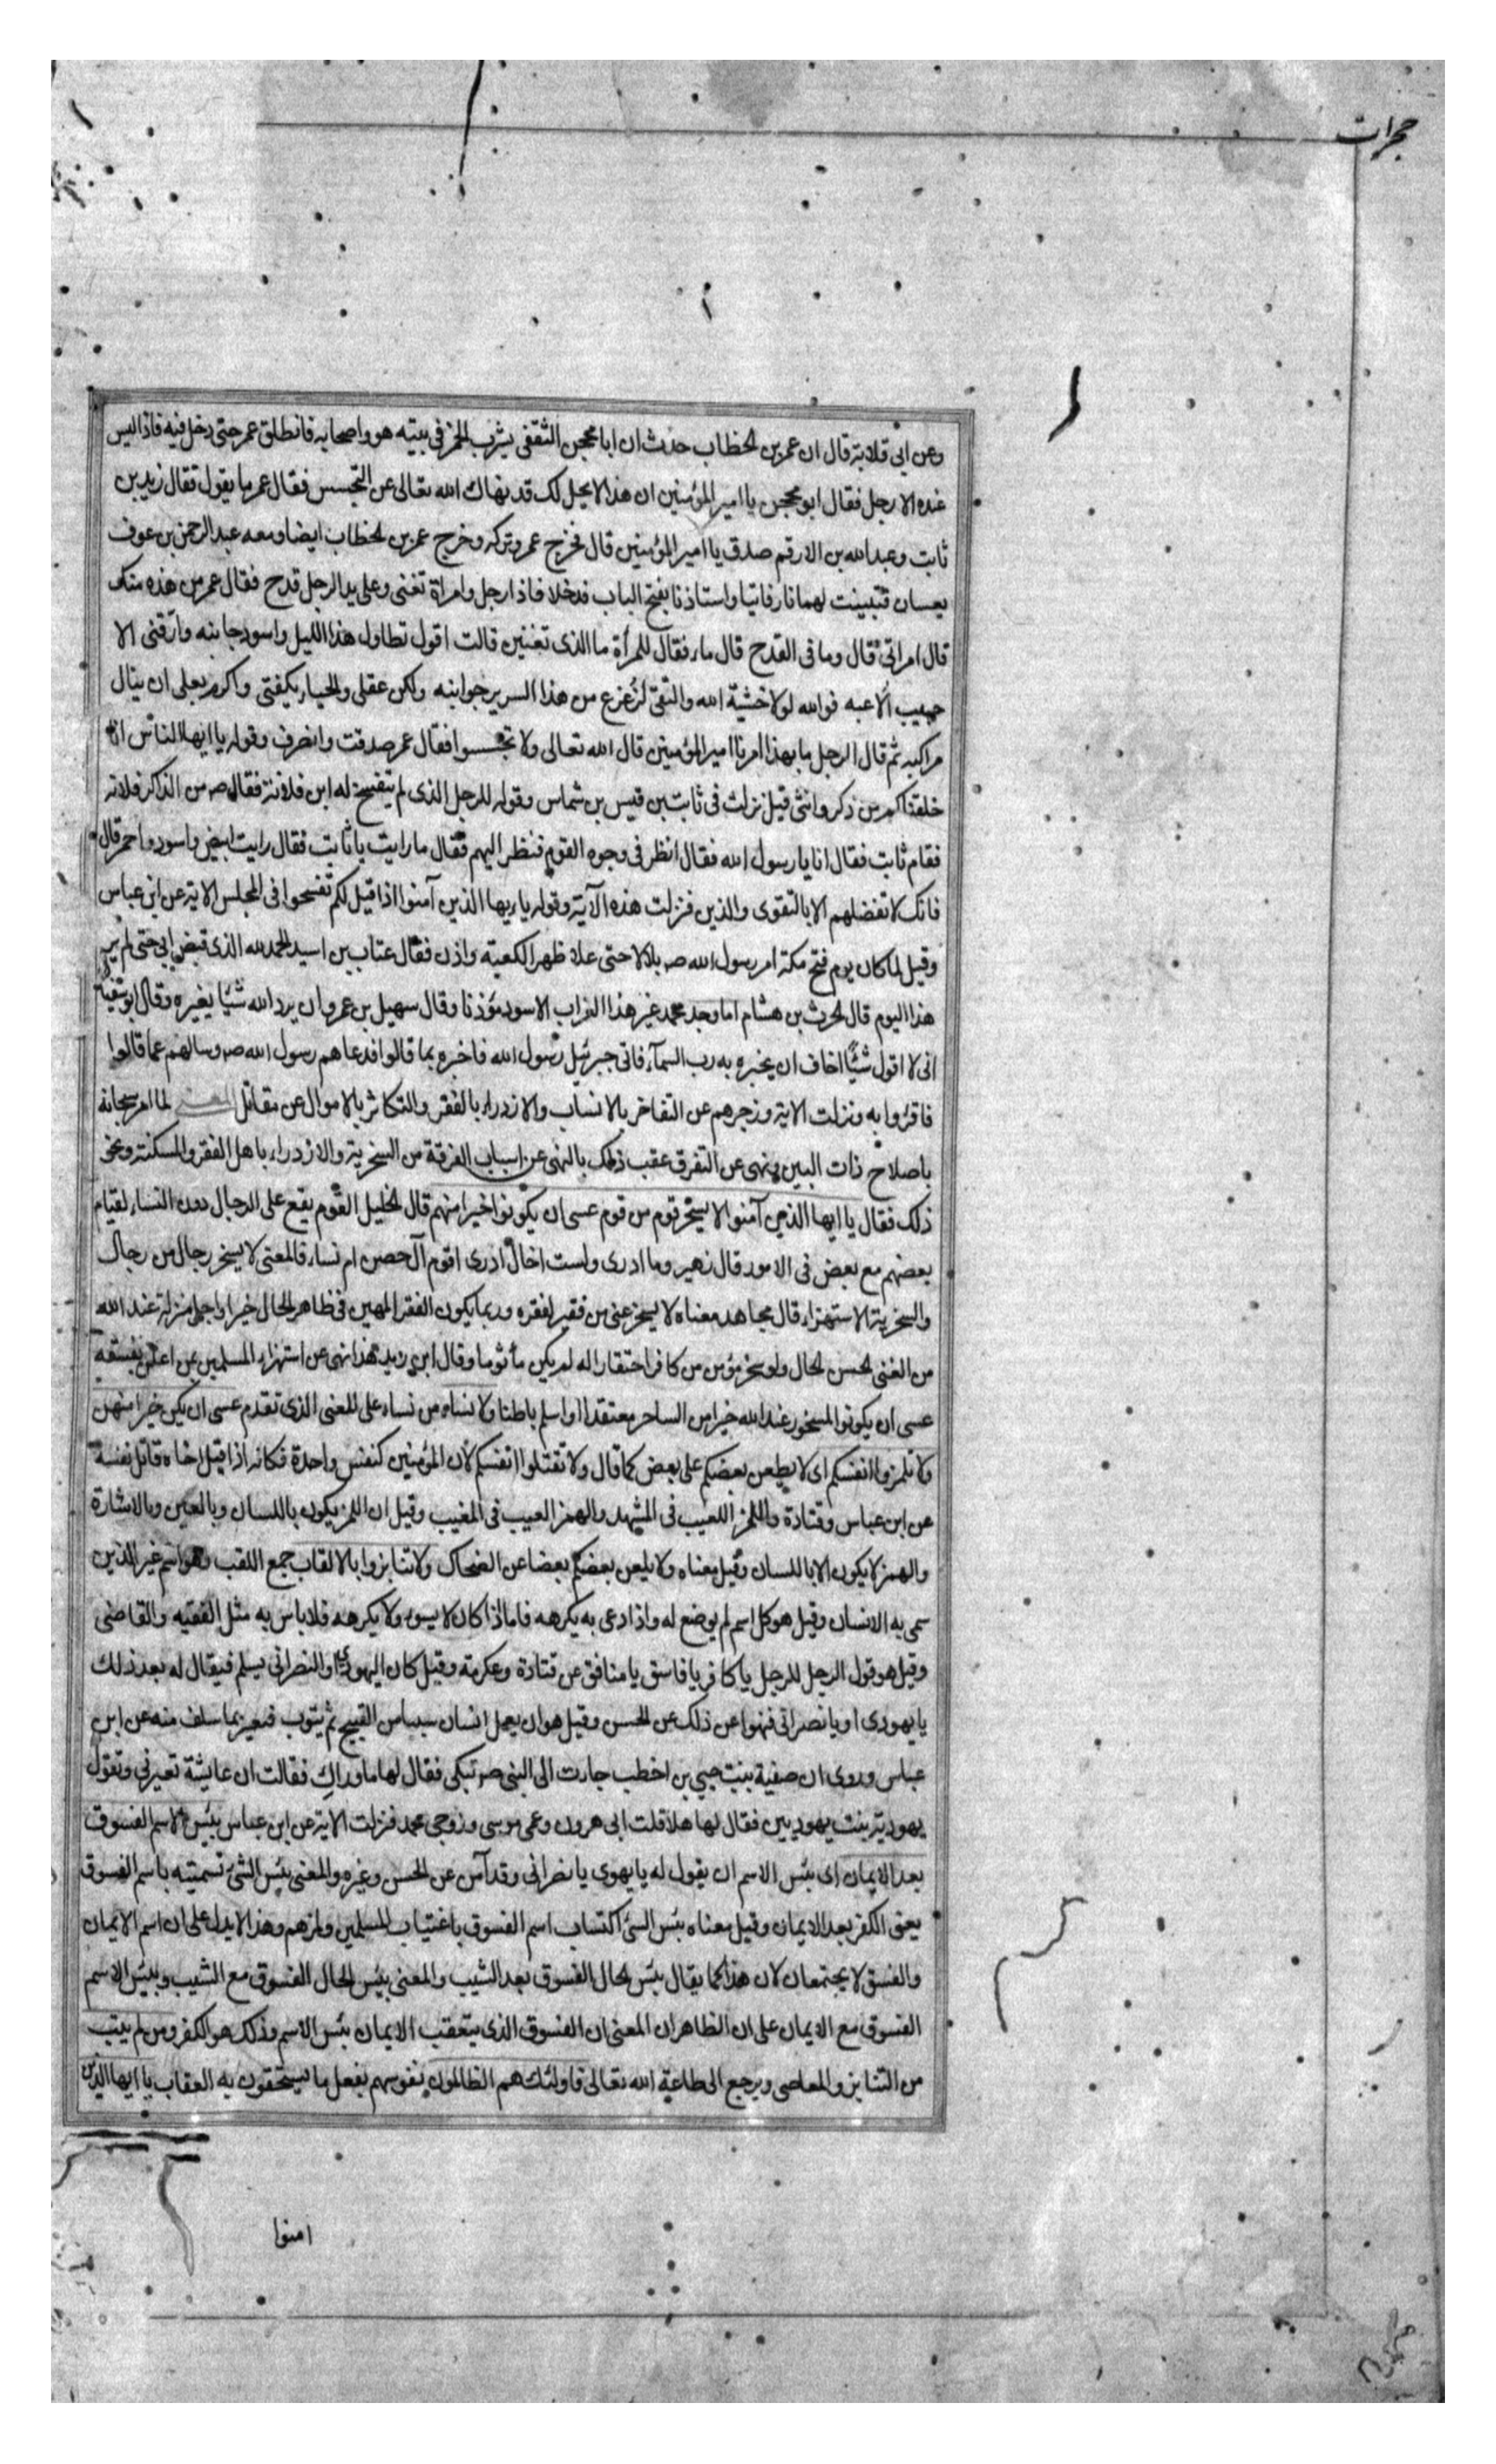 حجرات
وعن ابى قلابة قال ان عمر بن الخطاب حدث ان ابا محجن الثقفى يشرب الخمر فى بيته هو واصحابه فانطلق عمر حتى دخل فيه فاذا ليس
عنده الا رجل فقال ابو محجن يا امير المؤمنين ان هذا لا يحل لك قد نهاك الله تعالى عن التجسس فقال عمر ما يقول فقال زيد بن
ثابت وعبد الله بن الارقم صدق يا امير المؤمنين قال فخرج عمر وتركه وخرج عمر بن الخطاب ايضا ومعه عبد الرحمن بن عوف
يعسان فتبينت لهما نار فاتيا واستاذنا بفتح الباب فدخلا فاذا رجل وامراة تغنى وعلى يد الرجل قدح فقال عمر من هذه منك
قال امراتى فقال وما فى القدح قال ماء فقال للمرأة ما الذى تغنين قالت اقول تطاول هذا الليل واسود جانبه وارقنى الا
حبيب الاعبه فوالله لولا خشية الله والتقى لزعزع من هذا السرير جوانبه ولكن عقلى والحياء يكفنى واكرم بعلى ان ينال
مراكبه ثم قال الرجل ما بهذا امرنا امير المؤمنين قال الله تعالى ولا تجسسوا فقال عمر صدقت وانصرف وقوله يا ايها الناس انا
خلقناكم من ذكر وانثى قيل نزلت فى ثابت بن قيس بن شماس وقوله للرجل الذى لم يتفسح له ابن فلانة فقال ص من الذاكر فلانه
فقام ثابت فقال انا يا رسول الله فقال انظر فى وجوه القوم فنظر اليهم فقال ما رايت يا ثابت فقال رايت ابيض واسود واحمر قال
فانك لا تفضلهم الا بالتقوى والدين فنزلت هذه الآية وقوله يا ايها الذين آمنوا اذا قيل لكم تفسحوا فى المجلس الاية عن ابن عباس
وقيل لما كان يوم فتح مكة امر رسول الله ص بلالا حتى علا ظهر الكعبة واذن فقال عتاب بن اسيد الحمد لله الذى قبض ابى حتى لم ير
هذا اليوم قال الحرث بن هشام اما وجد محمد غير هذا الغراب الاسود مؤذنا وقال سهيل بن عمرو ان يرد الله شيئا يغيره وقال ابو سفين
انى لا اقول شيئا اخاف ان يخبره به رب السمآء فاتى جبرئيل رسول الله فاخبره بما قالوا فدعاهم رسول الله ص وسالهم عما قالوا
فاقروا به ونزلت الاية وزجرهم عن التفاخر بالانساب والازدراء بالفقر والتكاثر بالاموال عن مقاتل لما امر سبحانه
باصلاح ذات البين ونهى عن التفرق عقب ذلك بالنهى عن اسباب الفرقة من السخرية والازدراء باهل الفقر والمسكنة ونحو
ذلك فقال يا ايها الذين آمنوا لا يسخر قوم من قوم عسى ان يكونوا خيرا منهم قال الخليل القوم يقع على الرجال دون النساء لقيام
بعضهم مع بعض فى الامور قال زهير وما ادرى ولست اخال ادرى اقوم آل حصن ام نساء فالمعنى لا يسخر رجال من رجال
والسخرية الاستهزاء قال مجاهد معناه لا يسخر غنى من فقير لفقره وربما يكون الفقر المهين فى ظاهر الحال خيرا واجل منزلة عند الله
من الغنى الحسن الحال ولو سخر مؤمن من كافر احتقارا له لم يكن مأثوما وقال ابن زيد هذا نهى عن استهزاء المسلمين من اعلن بفسقه
عسى ان يكونوا المسخور عند الله خيرا من الساخر معتقدا او اسلم باطنا ولا نساء من نساء على المعنى الذى تقدم عسى ان يكن خيرا منهن
ولا تلمزوا انفسكم اى لا يطعن بعضكم على بعض كما قال ولا تقتلوا انفسكم لان المؤمنين كنفس واحدة فكانه اذا قتل اخاه قاتل نفسه
عن ابن عباس وقتادة واللمز العيب فى المشهد والهمز العيب فى المغيب وقيل ان اللمز يكون باللسان وبالعين وبالاشارة
والهمز لا يكون الا باللسان وقيل معناه ولا يلعن بعضكم بعضا عن الضحاك ولا تنابزوا بالالقاب جمع اللقب وهو اسم غير الذين
سمى به الانسان وقيل هو كل اسم لم يوضع له واذا دعى به يكرهه فاما اذا كان لا يسوء ولا يكرهه فلا باس به مثل الفقيه والقاضى
وقيل هو قول الرجل للرجل يا كافر يا فاسق يا منافق عن قتادة وعكرمة وقيل كان اليهودى او النصرانى يسلم فيقال له بعد ذلك
يا يهودى او يا نصرانى فنهوا عن ذلك عن الحسن وقيل هو ان يعمل انسان سببا من القبيح ثم يتوب فيعير بما سلف منه عن ابن
عباس وروى ان صفية بنت حيى بن اخطب جاءت الى النبى ص تبكى فقال لها ما وراك فقالت ان عايشة تعيرنى وتقول
يهودية بنت يهوديين فقال لها هلا قلت ابى هرون وعمى موسى وزوجى محمد فنزلت الاية عن ابن عباس بئس الاسم الفسوق
بعد الايمان اى بئس الاسم ان يقول له يا يهوى يا نصرانى وقد آمن عن الحسن وغيره والمعنى بئس الشئ تسميته باسم الفسوق
يعنى الكفر بعد الايمان وقيل معناه بئس الشئ اكتساب اسم الفسوق باغتياب المسلمين ولمزهم وهذا لا يدل على ان اسم الايمان
والفسق لا يجتمعان لان هذا كما يقال بئس الحال الفسوق بعد الشيب والمعنى بئس الحال الفسوق مع الشيب وبئس الاسم
الفسوق مع الايمان على ان الظاهر ان المعنى ان الفسوق الذى يتعقب الايمان بئس الاسم وذلك هو الكفر ومن لم يتب
من التنابز والمعاصى ويرجع الى طاعة الله تعالى فاولئك هم الظالمون نفوسهم بفعل ما يستحقون به العقاب يا ايها الذين
امنوا